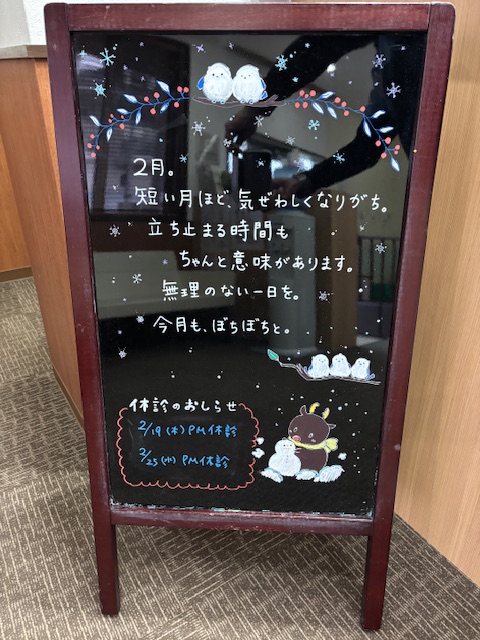 2月。
短い月ほど、気ぜわしくなりがち。
立ち止まる時間も
ちゃんと意味があります。
無理のない一日を。
今月も、ぼちぼちと。
休診のおしらせ
2/19(木)PM休診
2/25(水)PM休診